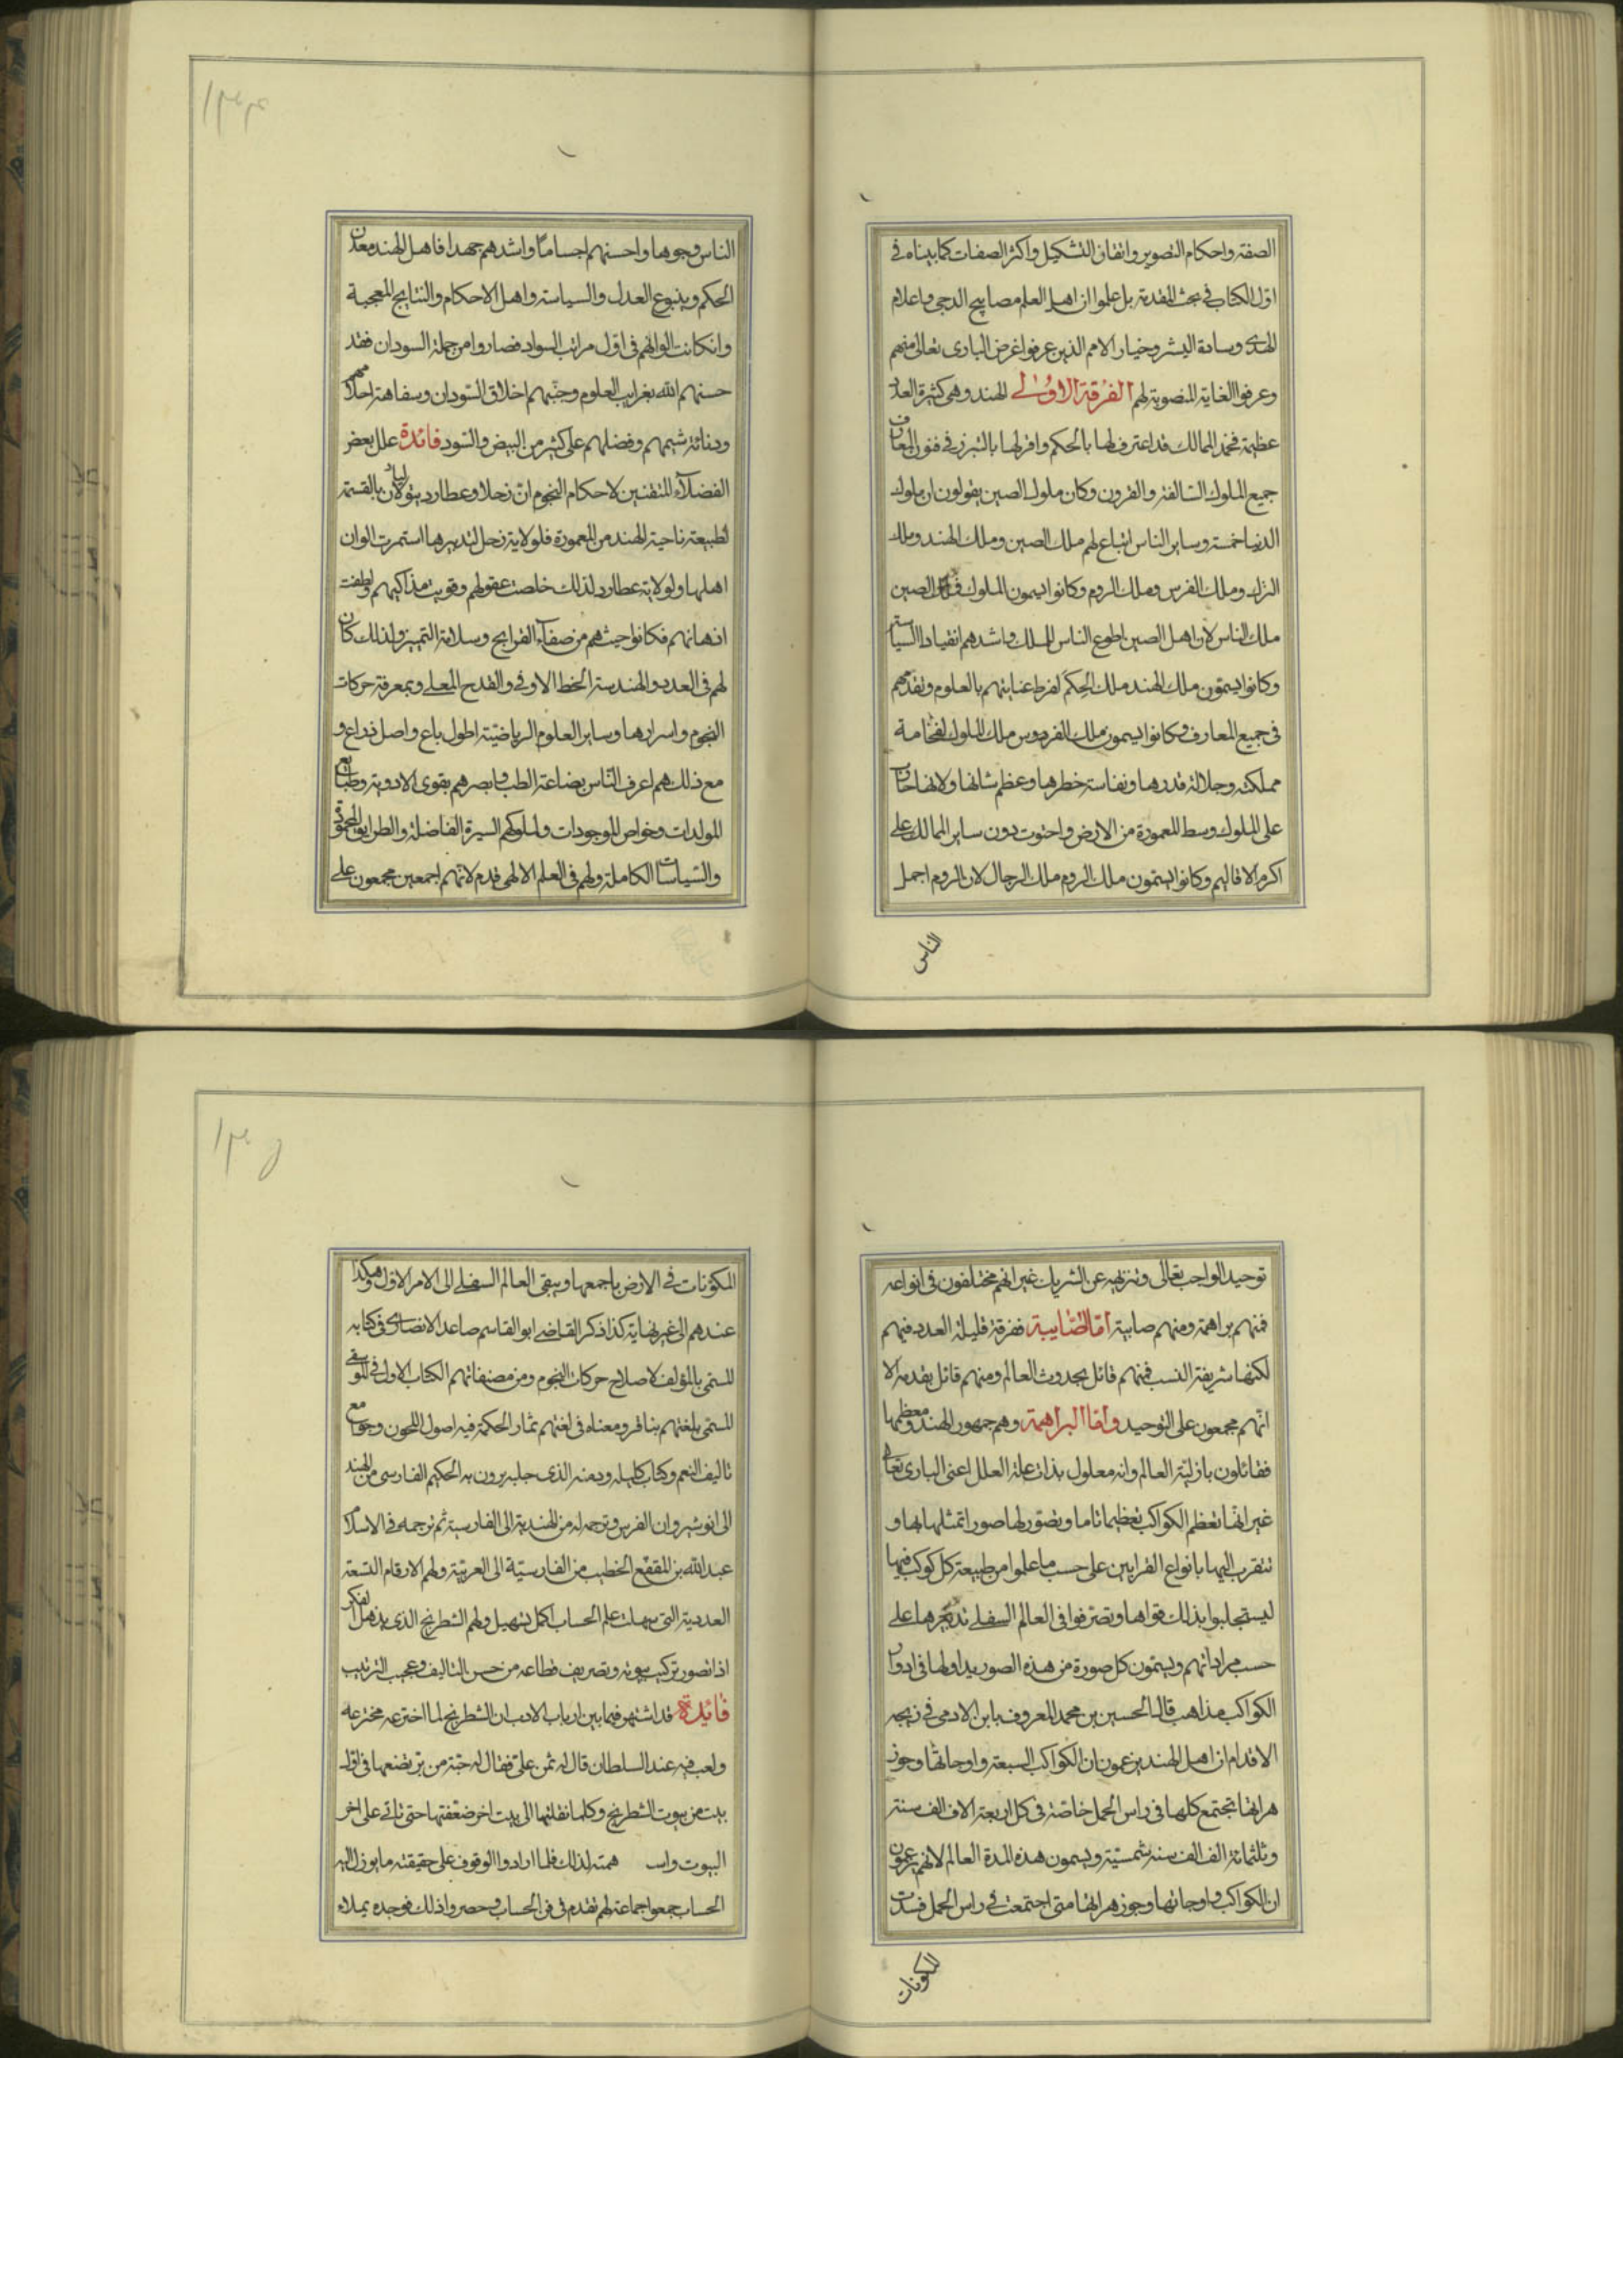 الصفة واحكام التصوير واتقان التشكيل واكثر الصفات كما بيناه في
اول الكتاب في بحث المقدمة بل علموا ان اهل العلم مصابيح الدجى واعلام
الهدى وسادة البشر وخيار الامم الذين عرفوا غرض البارى تعالى منهم
وعرفوا الغاية المنصوبة لهم الفرقة الاولى الهند وهى كثيرة العدد
عظيمة فخمة الممالك قد اعترف لها بالحكم واقر لها بالتبرز في فنون المعارف
جميع الملوك السالفة والقرون وكان ملوك الصين يقولون ان ملوك
الدنيا خمسة وساير الناس اتباع لهم ملك الصين وملك الهند وملك
الترك وملك الفرس وملك الروم وكانوا يسمون الملوك فملك الصين
ملك الناس لان اهل الصين اطوع الناس للملك واشدهم انقيادا للسياسة
وكانوا يسمون ملك الهند ملك الحكم لفرط عنايتهم بالعلوم وتقدمهم
في جميع المعارف وكانوا يسمون ملك الفردوس ملك الملوك لفخامة
مملكته وجلالة قدرها ونفاسة خطرها وعظم شانها ولانها حازت
على الملوك وسط المعمورة من الارض واحتوت دون ساير الممالك على
اكرم الاقاليم وكانوا يسمون ملك الروم ملك الرجال لان الروم اجمل
الناس
الناس وجوها واحسنهم اجساما واشدهم جهدا فاهل الهند معدن
الحكم وينبوع العدل والسياسة واهل الاحكام والنتايج المعجبة
وانكانت الوانهم في اول مراتب السواد فصاروا من جملة السودان فقد
حسنهم الله بغرايب العلوم وجنبهم اخلاق السودان وسفاهة احلامهم
ودنائة شيمهم وفضلهم على كثير من البيض والسود فائدة علل بعض
الفضلاء المتقنين لاحكام النجوم ان زحلا وعطارد يتوليان بالقسمة
لطبيعة ناحية الهند من المعمورة فلولاية زحل لتدبيرها استمرت الوان
اهلها ولولاية عطارد لذلك خلصت عقولهم وقويت مذاكيهم ولطفت
اذهانهم فكانوا حيث هم من صفاء القرايح وسلامة التميز ولذلك كان
لهم في العدد والهندسة الخط الاوفى والقدح المعلى وبمعرفة حركات
النجوم واسرارها وساير العلوم الرياضية اطول باع واصل ذراع و
مع ذلك هم اعرف الناس بصناعة الطب وابصرهم بقوى الادوية وطبايع
المولدات وخواص الموجودات ولملوكهم السيرة الفاضلة والطرايق المحمودة
والسياسات الكاملة ولهم في العلم الالهى قدم لانهم اجمعين مجمعون على
توحيد الواجب تعالى وتنزيهه عن الشريك غير انهم مختلفون في انواعه
فمنهم براهمة ومنهم صابية اما الصابية ففرقة قليلة العدد فيهم
لكنها شريفة النسب فمنهم قائل بحدوث العالم ومنهم قائل بقدمه الا
انهم مجمعون على التوحيد واما البراهمة وهم جمهور الهند ومعظمها
فقائلون بازلية العالم وانه معلول بذات علة العلل اعنى البارى تعالى
غير انها تعظم الكواكب تعظيما تاما وتصور لها صورا تمثلها بها و
تتقرب اليها بانواع القرابين على حسب ما علموا من طبيعة كل كوكب فيها
ليستجلبوا بذلك قواها ويتصرفوا في العالم السفلى تدبيرها على
حسب مراداتهم ويسمون كل صورة من هذه الصور بدا ولها في ادوار
الكواكب مذاهب قال الحسين بن محمد المعروف بابن الادمى في زيجه
الاقدام ان اهل الهند يزعمون ان الكواكب السبعة واوجاتها وجوز
هراتها تجتمع كلها في راس الحمل خاصة في كل اربعة الاف الف سنة
وثلثمائة الف الف سنه شمسية ويسمون هذه المدة العالم لانهم يزعمون
ان الكواكب واوجاتها وجوزهراتها متى اجتمعت في راس الحمل فسدت
المكونات
المكونات في الارض باجمعها ويبقى العالم السفلى الى الامر الاول وهكذا
عندهم الى غير نهاية كذا ذكر القاضى ابو القاسم صاعد الانصارى في كتابه
المسمى بالمؤلف لاصلاح حركات النجوم ومن مصنفاتهم الكتاب الاول في الموسيقى
المسمى بلغتهم بنافر ومعناه في لغتهم ثمار الحكمة فيه اصول اللحون وجوامع
تاليف النغم وكتاب كليله ودمنه الذى جلبه برون به الحكيم الفارسى من الهند
الى انوشيروان الفرس وترجمه له من الهندية الى الفارسية ثم ترجمه في الاسلام
عبد الله بن المقفع الخطيب من الفارسية الى العربية ولهم الارقام التسعة
العددية التى سهلت علم الحساب اكمل تسهيل ولهم الشطرنج الذى يذهل الفكر
اذا تصور تركيب بيوته وتصريف قطاعه من حسن التاليف وعجيب الترتيب
فائدة قد اشتهر فيما بين ارباب الادب ان الشطرنج لما اخترعه مخترعه
ولعب فيه عند السلطان قال له ثمن على فقال له حبة من بر تضعها في اول
بيت من بيوت الشطرنج وكلما نقلتها الى بيت اخر ضعفتها حتى تاتى على اخر
البيوت واستـ همته لذلك فلما ارادوا الوقوف على حقيقته ما يوزل اليه
الحساب جمعوا جماعة لهم تقدم في فن الحساب وحصروا ذلك فوجده يملاء